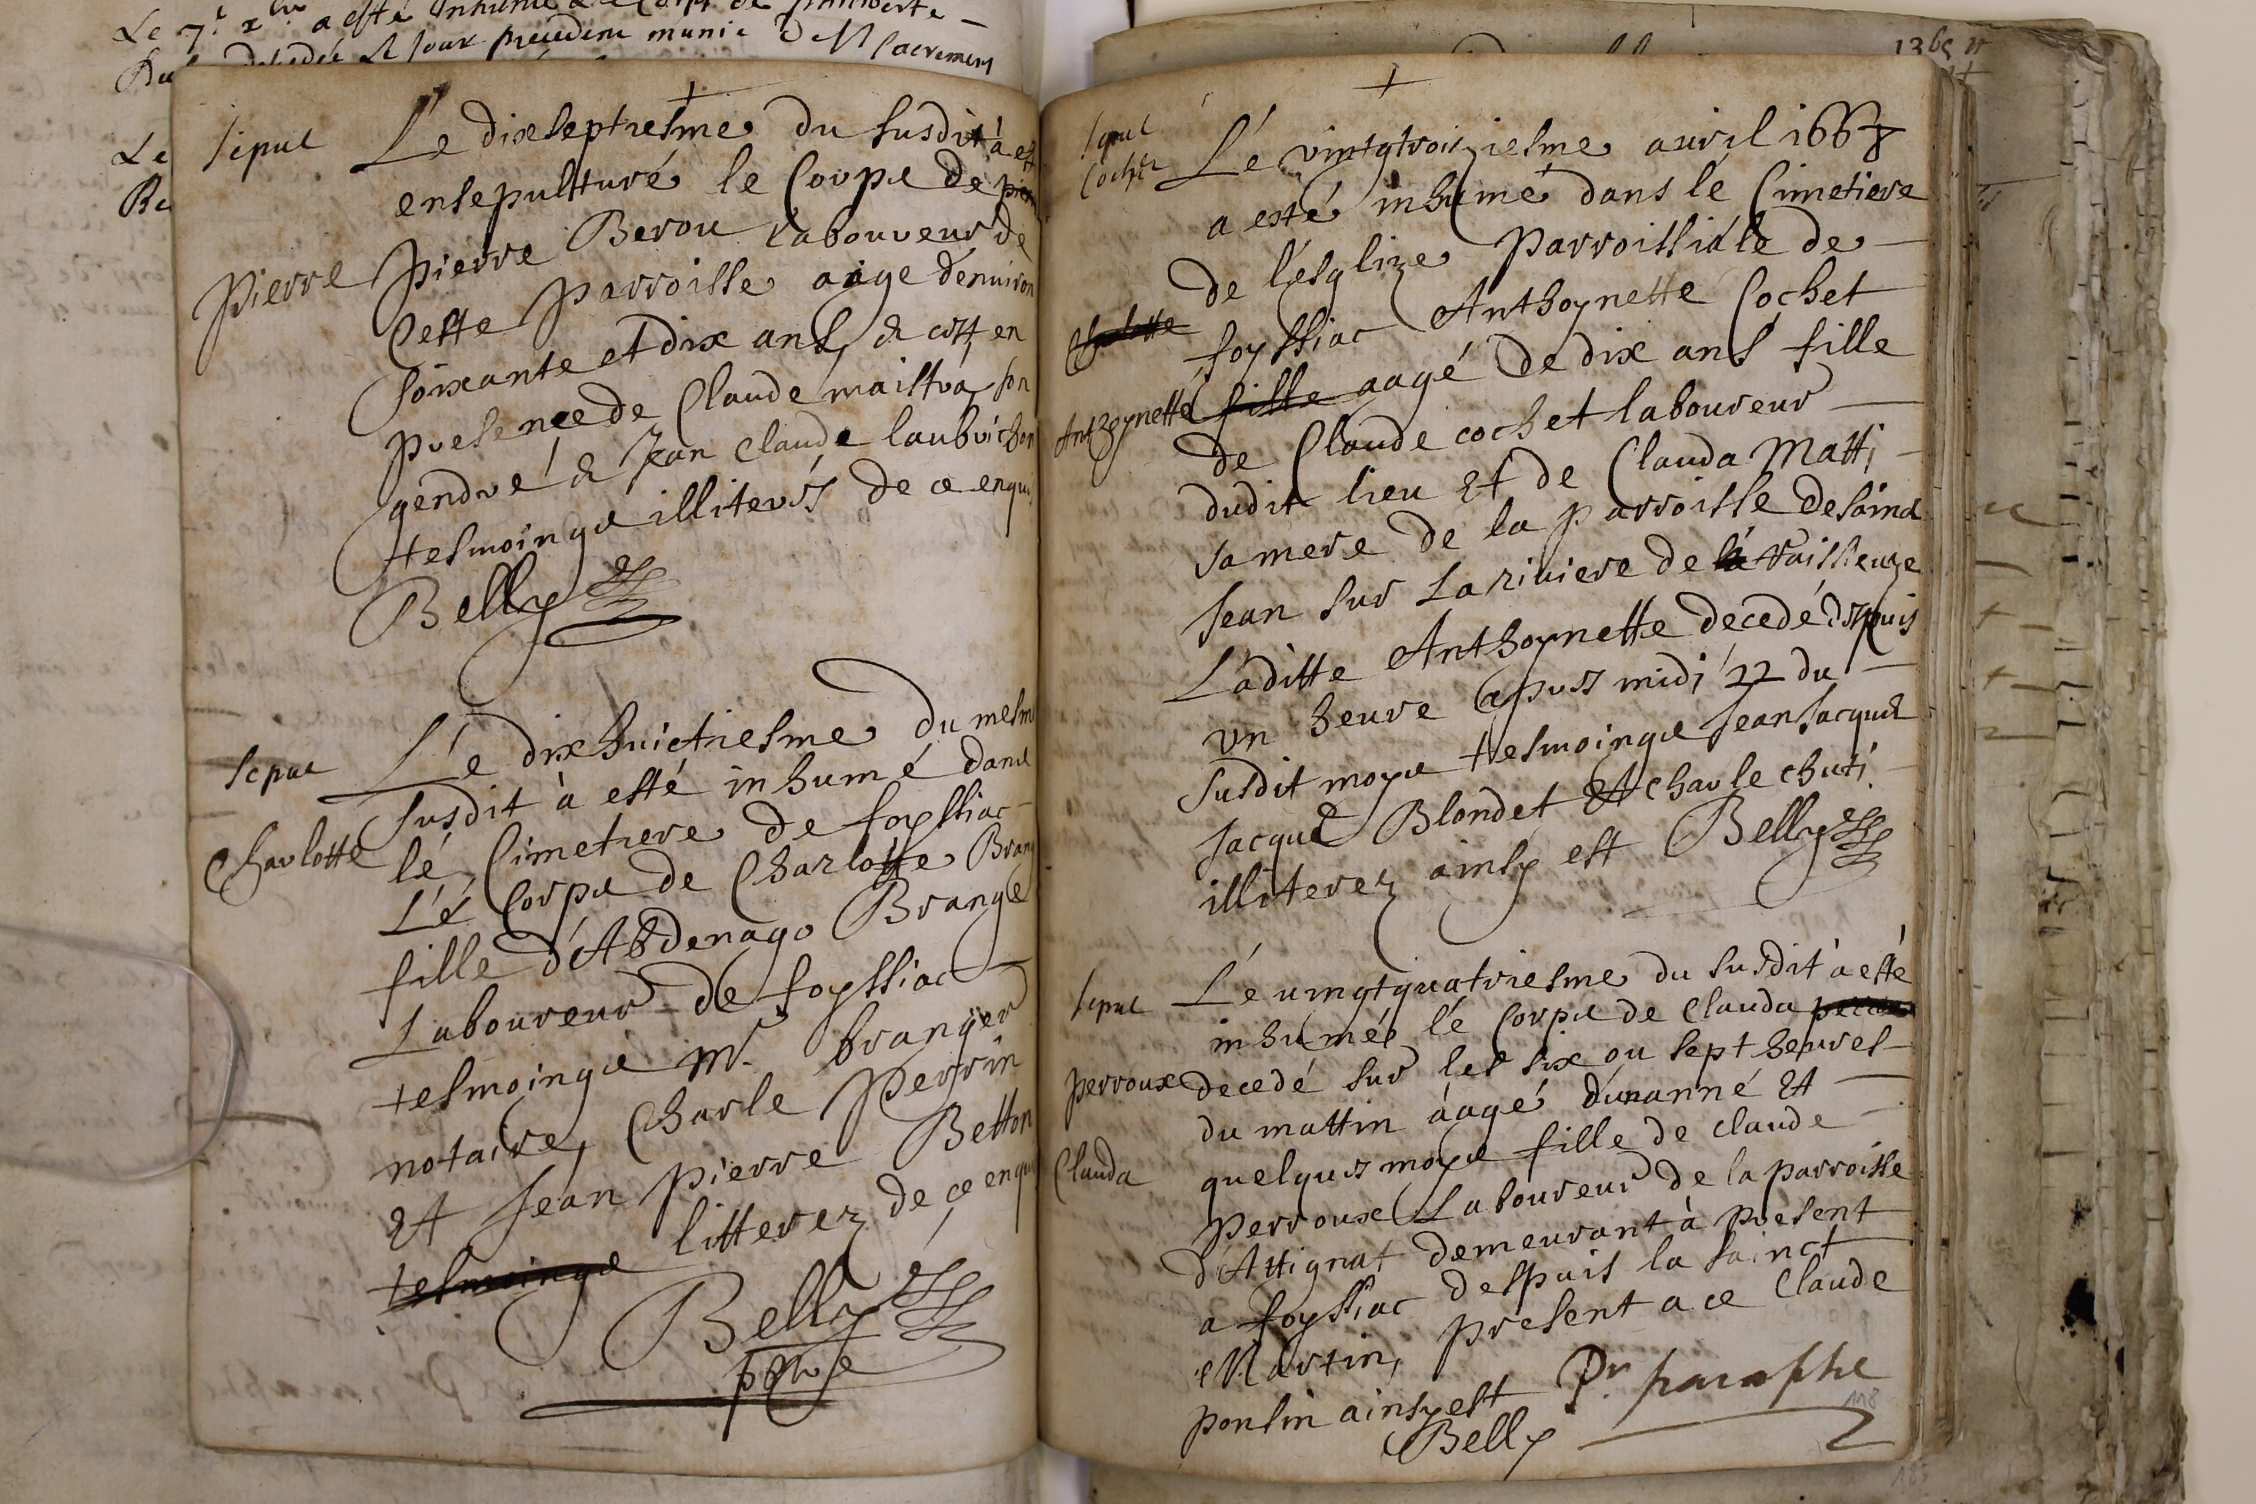 Le 7.e x.bre a esté inhumé le Corps de
decedée le jour precedent munie des sacremens
Le
sepul
Le dixseptiesme du susdit à est
ensepulturé le Corps de pierre
Pierre
Pierre Berou laboureur de
Cette parroisse aage d'enuiron
soixante et dix ans, & cett, en
presence de Claude maistra son
gendré & Jean Claude laubrichon
tesmoings illiterés de ce enquis
Belly
sepul
Le dixhuictiesme du mesme
susdit à esté inhumé dans
Charlotte
lé Cimetiere de foyssiac
Lé Corps de Charlotte Brang
fille d'Abdenago Brange
Laboureur de foyssiac
tesmoings m.r branger
notaire, Charle Perrin
et Jean Pierre Betton
tesmoings litterez de ce enquis
Belly
pbre
+
sepul
Cochet
Lé vingtroiziesme auril 1668
a esté inhumé dans lé Cimetiere
de l'esglize Parroissiale de
Charlotte
foyssiac Anthoynette Cochet
Anthoynette
fille aagé de dix ans fille
de Claude cochet laboureur
dudit lieu et de Clauda Matti
sa mere de la parroisse de sainct
Jean sur la riuiere de la Vaissieuze
Laditte Anthoynette decedé despuis
vn heure apres midi 22 du
susdit moys tesmoings Jean Jacques
Jacques Blondet et charle chuti
illiterez ainsy est Belly
sepul
Lé uingtquatriesme du susdit à esté
inhumée lé Corps de Clauda perrou
perroux
decedé sur les six ou sept heures
du mattin àagé d'unanné et
Clauda
quelques moys fille de claude
Perroux Laboureur de la parroisse
d'Attignat demeurant à present
a foyssiac despuis la sainct
Martin, present a ce Claude
ponsin ainsy est
Belly
Pr. paraphe
118